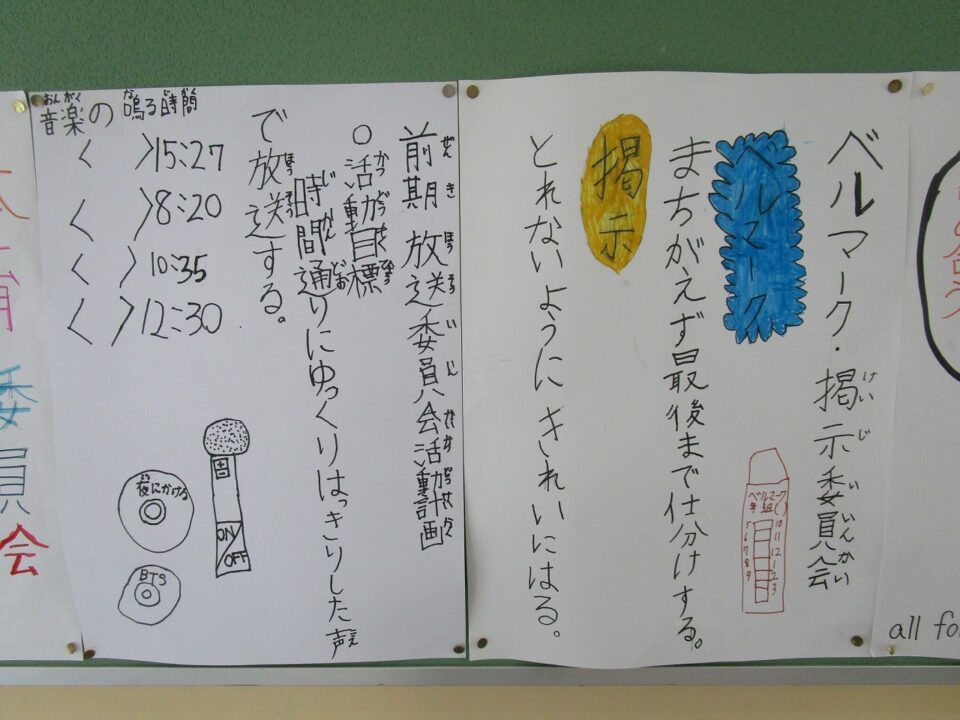 ベルマーク・掲示委員会
けいじいいんかい
ベルマーク
まちがえず最後まで仕分けする。
掲示
とれないようにきれいにはる。
ベルマーク
年 組( )
5 10
6 11
7 12
8 1
9 2
3
all fo
前期 放送委員会活動計画
○活動目標
時間通りにゆっくりはっきりした声
で放送する。
音楽の鳴る時間
おんがく な じかん
く 〉15:27
く 〉8:20
く 〉10:35
く 〉12:30
夜にかける
BTS
ON
OFF
委員会